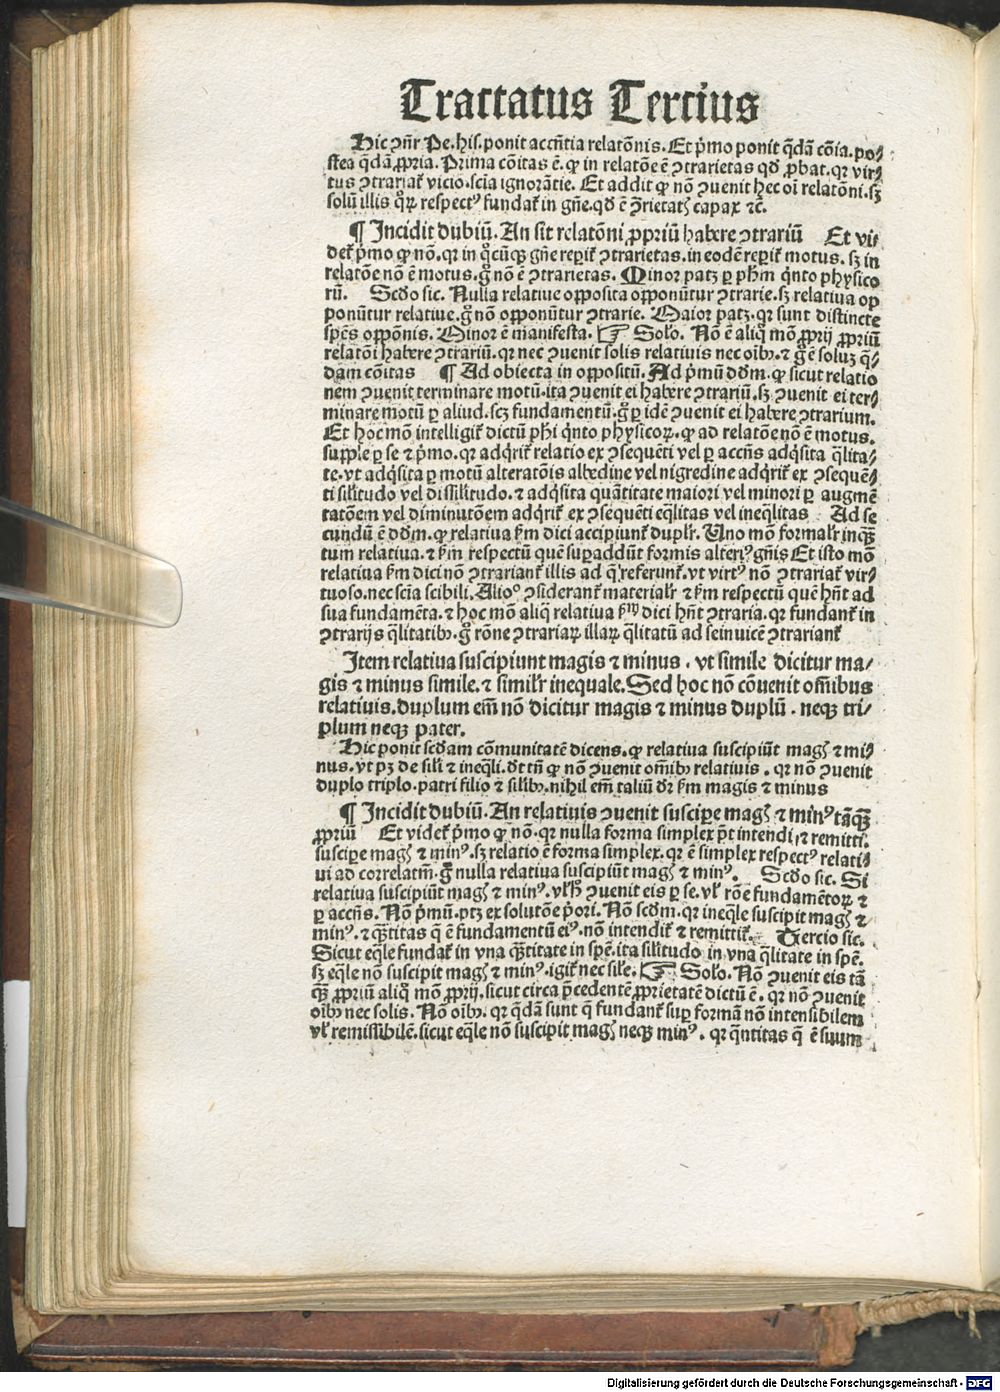 Tractatus Tercius
Hic ꝯñr Pe. hiſ. ponit accñtia relatõnis. Et p̃mo ponit q̃dã cõia. po⸗
ſtea q̃dã ꝓpria. Prima cõitas ẽ. ꝙ in relatõe ẽ ꝯtrarietas qđ ꝓbat. qꝛ vir⸗
tus ꝯtrariat̃ vicio. ſcĩa ignorãtie. Et addit ꝙ nõ ꝯuenit hec oĩ relatõni. ſꝫ
ſolũ illis quoꝝ reſpectꝰ fundat̃ in gñe. qđ ẽ ꝯ̃rietatꝭ capax ⁊c̃.
¶ Incidit dubiũ. An ſit relatõni ꝓpriũ habere ꝯtrariũ Et vi⸗
det̃ p̃mo ꝙ nõ. qꝛ in quocũqꝫ gñe reperit̃ ꝯtrarietas. in eodẽ reperit̃ motus. ſꝫ in
relatõe nõ ẽ motus. gͦ nõ ẽ ꝯtrarietas. Minor patꝫ ꝑ pħm quinto phyſico
rũ. Scđo ſic. Nulla relatiue oppoſita opponũtur ꝯtrarie. ſꝫ relatiua op
ponũtur relatiue. gͦ nõ opponũtur ꝯtrarie. Maior patꝫ. qꝛ ſunt diſtincte
ſpẽs oppõnis. Minor ẽ manifeſta. ☞ Solo. Nõ ẽ aliquo mõ ꝓprij ꝓpriũ
relatõi habere ꝯtrariũ. qꝛ nec ꝯuenit ſolis relatiuis nec oĩbꝰ. ⁊ gͦ ẽ ſoluꝫ q̃⸗
dam cõitas ¶ Ad obiecta in oppoſitũ. Ad p̃mũ dđm. ꝙ ſicut relatio
nem ꝯuenit terminare motũ. ita ꝯuenit ei habere ꝯtrariũ. ſꝫ ꝯuenit ei ter⸗
minare motũ ꝑ aliud. ſcꝫ fundamentũ. gͦ ꝑ idẽ ꝯuenit ei habere ꝯtrarium.
Et hoc mõ intelligit̃ dictũ pħi quinto phyſicoꝝ. ꝙ ad relatõe nõ ẽ motus.
ſupple ꝑ ſe ⁊ p̃mo. qꝛ adq̃rit̃ relatio ex ꝯſequẽti vel ꝑ accñs adq̃ſita q̃lita⸗
te. vt adq̃ſita ꝑ motũ alteratõis albedine vel nigredine adq̃rit̃ ex ꝯſequẽ⸗
ti ſil̃itudo vel diſſil̃itudo. ⁊ adq̃ſita quãtitate maiori vel minori ꝑ augmẽ
tatõem vel diminutõem adq̃rit̃ ex ꝯſequẽti eq̃litas vel ineq̃litas Ad ſe
cundũ ẽ dđm. ꝙ relatiua ẜm dici accipiunt̃ duplr̃. Vno mõ formalr̃ inqꝫ̃
tum relatiua. ⁊ ẜm reſpectũ quẽ ſuꝑaddũt formis alteriꝰ gñis Et iſto mõ
relatiua ẜm dici nõ ꝯtrariant̃ illis ad q̃ referunt̃. vt virtꝰ nõ ꝯtrariat̃ vir⸗
tuoſo. nec ſcĩa ſcibili. Alioͦ ꝯſiderant̃ materialr̃ ⁊ ẜm reſpectũ quẽ hñt ad
ſua fundamẽta. ⁊ hoc mõ aliq̃ relatiua ẜm dici hñt ꝯtraria. qꝛ fundant̃ in
ꝯtrarijs q̃litatibꝰ. gͦ rõne ꝯtrariaꝝ illaꝝ q̃litatũ ad ſeinuicẽ ꝯtrariant̃
Item relatiua ſuſcipiunt magis ⁊ minus. vt ſimile dicitur ma⸗
gis ⁊ minus ſimile. ⁊ ſimilr̃ inequale. Sed hoc nõ cõuenit om̃ibus
relatiuis. duplum em̃ nõ dicitur magis ⁊ minus duplũ. neqꝫ tri⸗
plum neqꝫ pater.
Hic ponit ſcđam cõmunitatẽ dicens. ꝙ relatiua ſuſcipiũt magꝭ ⁊ mi⸗
nus. vt pꝫ de ſil̃i ⁊ ineq̃li. đt tñ ꝙ nõ ꝯuenit om̃ibꝰ relatiuis. qꝛ nõ ꝯuenit
duplo triplo. patri filio ⁊ ſil̃ibꝰ. nihil em̃ taliũ đr ẜm magis ⁊ minus
¶ Incidit dubiũ. An relatiuis ꝯuenit ſuſciꝑe magꝭ ⁊ minꝰ tãqꝫ̃
ꝓpriũ Et videt̃ p̃mo ꝙ nõ. qꝛ nulla forma ſimplex p̃t intendi, ⁊ remitti.
ſuſciꝑe magꝭ ⁊ minꝰ. ſꝫ relatio ẽ forma ſimplex. qꝛ ẽ ſimplex reſpectꝰ relati⸗
ui ad correlatm̃. gͦ nulla relatiua ſuſcipiũt magꝭ ⁊ minꝰ. Scđo ſic. Si
relatiua ſuſcipiũt magꝭ ⁊ minꝰ. vel hͦ ꝯuenit eis ꝑ ſe. vel rõe fundamẽtoꝝ ⁊
ꝑ accñs. Nõ p̃mũ. ptꝫ ex ſolutõe p̃ori. Nõ ſcđm. qꝛ ineq̃le ſuſcipit magꝭ ⁊
minꝰ. ⁊ qꝫ̃titas q̃ ẽ fundamentũ eiꝰ. nõ intendit̃ ⁊ remittit̃. Tercio ſic.
Sicut eq̃le fundat̃ in vna qꝫ̃titate in ſpẽ. ita ſil̃itudo in vna q̃litate in ſpẽ.
ſꝫ eq̃le nõ ſuſcipit magꝭ ⁊ minꝰ. igit̃ nec ſil̃e. ☞ Solo. Nõ ꝯuenit eis tã
qꝫ̃ ꝓpriũ aliquo mõ ꝓprij. ſicut circa p̃cedentẽ ꝓprietatẽ dictũ ẽ. qꝛ nõ ꝯuenit
oĩbꝰ nec ſolis. Nõ oĩbꝰ. qꝛ q̃dã ſunt q̃ fundant̃ ſuꝑ formã nõ intenſibilem
vel remiſſibilẽ. ſicut eq̃le nõ ſuſcipit magꝭ neqꝫ minꝰ. qꝛ q̃ntitas q̃ ẽ ſuum
Digitalisierung gefördert durch die Deutsche Forschungsgemeinschaft - DFG